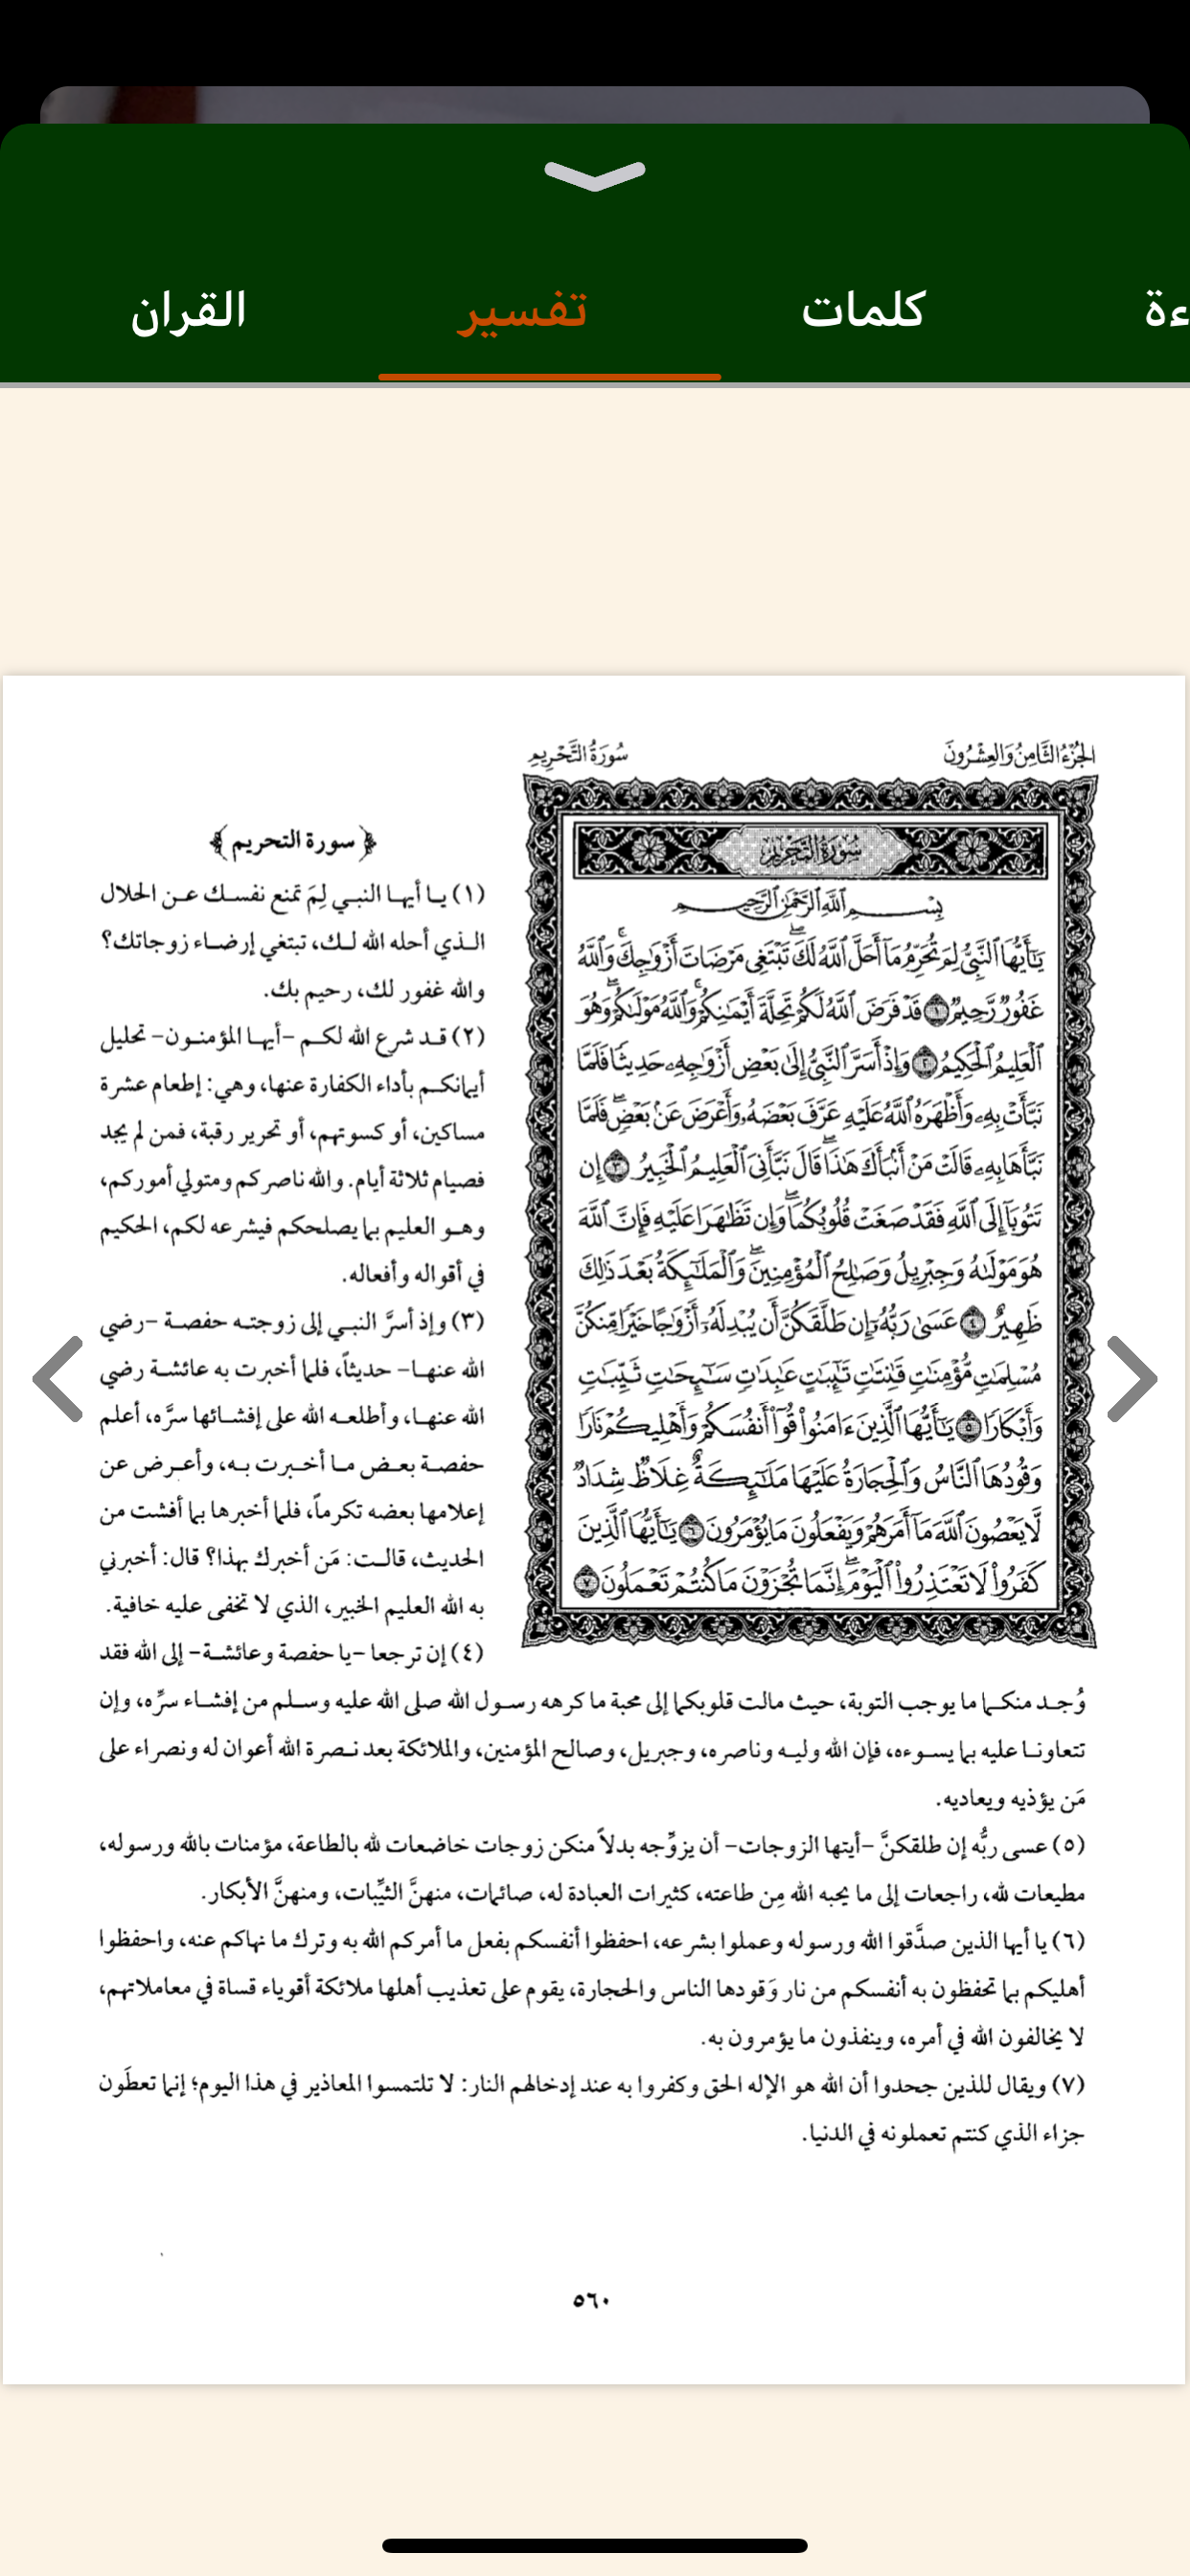 ءة
كلمات
تفسير
القران
الجُزْءُ الثَّامِنُ وَالعِشْرُونَ
سُورَةُ التَّحْرِيمِ
سُورَةُ التَّحْرِيمِ
بِسْمِ ٱللَّهِ ٱلرَّحْمَٰنِ ٱلرَّحِيمِ
يَٰٓأَيُّهَا ٱلنَّبِىُّ لِمَ تُحَرِّمُ مَآ أَحَلَّ ٱللَّهُ لَكَۖ تَبْتَغِى مَرْضَاتَ أَزْوَٰجِكَۚ وَٱللَّهُ
غَفُورٌ رَّحِيمٌ ١ قَدْ فَرَضَ ٱللَّهُ لَكُمْ تَحِلَّةَ أَيْمَٰنِكُمْۚ وَٱللَّهُ مَوْلَىٰكُمْۖ وَهُوَ
ٱلْعَلِيمُ ٱلْحَكِيمُ ٢ وَإِذْ أَسَرَّ ٱلنَّبِىُّ إِلَىٰ بَعْضِ أَزْوَٰجِهِۦ حَدِيثًا فَلَمَّا
نَبَّأَتْ بِهِۦ وَأَظْهَرَهُ ٱللَّهُ عَلَيْهِ عَرَّفَ بَعْضَهُۥ وَأَعْرَضَ عَنۢ بَعْضٍۖ فَلَمَّا
نَبَّأَهَا بِهِۦ قَالَتْ مَنْ أَنۢبَأَكَ هَٰذَاۖ قَالَ نَبَّأَنِىَ ٱلْعَلِيمُ ٱلْخَبِيرُ ٣ إِن
تَتُوبَآ إِلَى ٱللَّهِ فَقَدْ صَغَتْ قُلُوبُكُمَاۖ وَإِن تَظَٰهَرَا عَلَيْهِ فَإِنَّ ٱللَّهَ
هُوَ مَوْلَىٰهُ وَجِبْرِيلُ وَصَٰلِحُ ٱلْمُؤْمِنِينَۖ وَٱلْمَلَٰٓئِكَةُ بَعْدَ ذَٰلِكَ
ظَهِيرٌ ٤ عَسَىٰ رَبُّهُۥٓ إِن طَلَّقَكُنَّ أَن يُبْدِلَهُۥٓ أَزْوَٰجًا خَيْرًا مِّنكُنَّ
مُسْلِمَٰتٍ مُّؤْمِنَٰتٍ قَٰنِتَٰتٍ تَٰٓئِبَٰتٍ عَٰبِدَٰتٍ سَٰٓئِحَٰتٍ ثَيِّبَٰتٍ
وَأَبْكَارًا ٥ يَٰٓأَيُّهَا ٱلَّذِينَ ءَامَنُوا۟ قُوٓا۟ أَنفُسَكُمْ وَأَهْلِيكُمْ نَارًا
وَقُودُهَا ٱلنَّاسُ وَٱلْحِجَارَةُ عَلَيْهَا مَلَٰٓئِكَةٌ غِلَاظٌ شِدَادٌ
لَّا يَعْصُونَ ٱللَّهَ مَآ أَمَرَهُمْ وَيَفْعَلُونَ مَا يُؤْمَرُونَ ٦ يَٰٓأَيُّهَا ٱلَّذِينَ
كَفَرُوا۟ لَا تَعْتَذِرُوا۟ ٱلْيَوْمَۖ إِنَّمَا تُجْزَوْنَ مَا كُنتُمْ تَعْمَلُونَ ٧
﴿ سورة التحريم ﴾
(١) يا أيها النبي لِمَ تمنع نفسك عن الحلال
الذي أحله الله لك، تبتغي إرضاء زوجاتك؟
والله غفور لك، رحيم بك.
(٢) قد شرع الله لكم -أيها المؤمنون- تحليل
أيمانكم بأداء الكفارة عنها، وهي: إطعام عشرة
مساكين، أو كسوتهم، أو تحرير رقبة، فمن لم يجد
فصيام ثلاثة أيام. والله ناصركم ومتولي أموركم،
وهو العليم بما يصلحكم فيشرعه لكم، الحكيم
في أقواله وأفعاله.
(٣) وإذ أسرَّ النبي إلى زوجته حفصة -رضي
الله عنها- حديثاً، فلما أخبرت به عائشة رضي
الله عنها، وأطلعه الله على إفشائها سرَّه، أعلم
حفصة بعض ما أخبرت به، وأعرض عن
إعلامها بعضه تكرماً، فلما أخبرها بما أفشت من
الحديث، قالت: مَن أخبرك بهذا؟ قال: أخبرني
به الله العليم الخبير، الذي لا تخفى عليه خافية.
(٤) إن ترجعا -يا حفصة وعائشة- إلى الله فقد
وُجد منكما ما يوجب التوبة، حيث مالت قلوبكما إلى محبة ما كرهه رسول الله صلى الله عليه وسلم من إفشاء سرِّه، وإن
تتعاونا عليه بما يسوءه، فإن الله وليه وناصره، وجبريل، وصالح المؤمنين، والملائكة بعد نصرة الله أعوان له ونصراء على
مَن يؤذيه ويعاديه.
(٥) عسى ربُّه إن طلقكنَّ -أيتها الزوجات- أن يزوِّجه بدلاً منكن زوجات خاضعات لله بالطاعة، مؤمنات بالله ورسوله،
مطيعات لله، راجعات إلى ما يحبه الله مِن طاعته، كثيرات العبادة له، صائمات، منهنَّ الثيِّبات، ومنهنَّ الأبكار.
(٦) يا أيها الذين صدَّقوا الله ورسوله وعملوا بشرعه، احفظوا أنفسكم بفعل ما أمركم الله به وترك ما نهاكم عنه، واحفظوا
أهليكم بما تحفظون به أنفسكم من نار وَقودها الناس والحجارة، يقوم على تعذيب أهلها ملائكة أقوياء قساة في معاملاتهم،
لا يخالفون الله في أمره، وينفذون ما يؤمرون به.
(٧) ويقال للذين جحدوا أن الله هو الإله الحق وكفروا به عند إدخالهم النار: لا تلتمسوا المعاذير في هذا اليوم؛ إنما تعطَون
جزاء الذي كنتم تعملونه في الدنيا.
٥٦٠